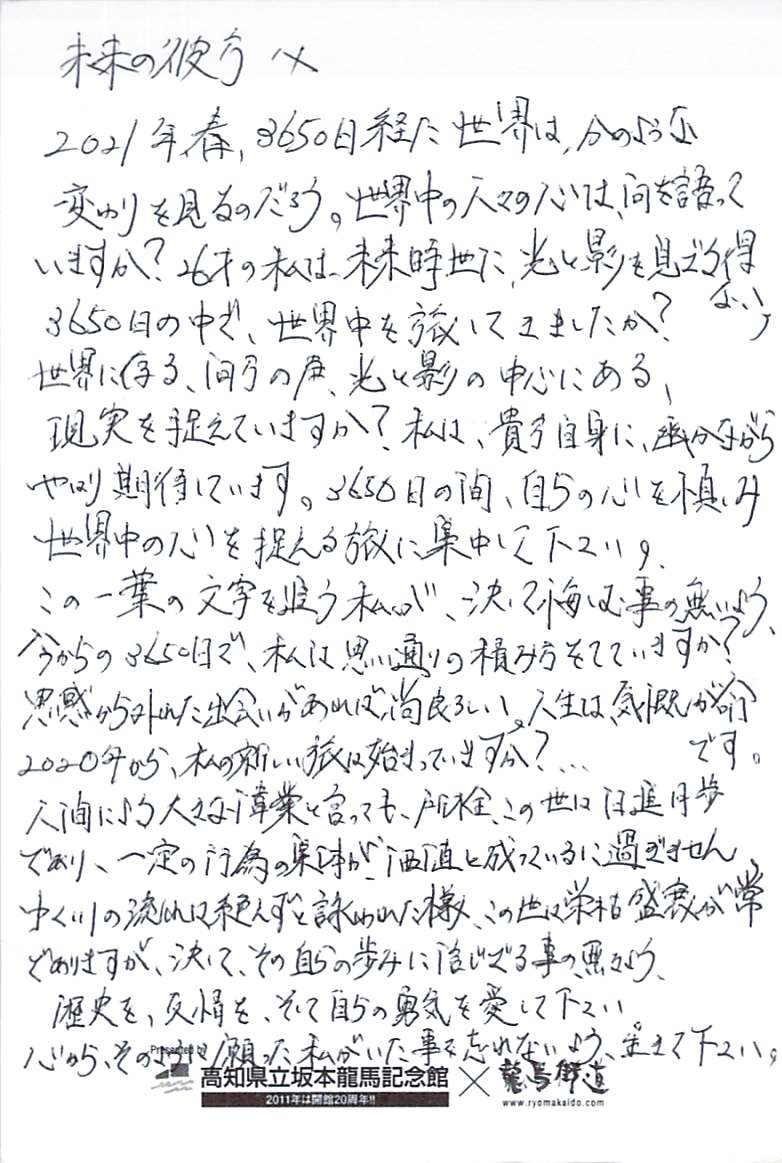 未来の彼方へ
2021年春、3650日経た世界は、かのような
変わりを見るのだろう。世界中の人々の心は、何を語って
いますか？26才の私は、未来時世に、光と影を見ざる得ない、
3650日の中で、世界中を旅してきましたか？
世界に係る、何らの虐、光と影の中心にある、
現実を捉えていますか？私は、貴方自身に、幽かながら
やはり期待しています。3650日の間、自らの心を慎しみ
世界中の心を捉える旅に集中して下さい。
この一葉の文字を追う私が、決して悔しむ事の無いよう、
今からの3650日で、私は思い通りの積み方をしていますか？
思惑から外れた出会いがあれば尚良ろしい。人生は、気概が命です。
2020年から、私の新しい旅は始まっていますか？…
人間による大きな偉業と言っても、所栓、この世は日進月歩
であり、一定の行為の集体が、価値と成っているに過ぎません。
ゆく川の流れは絶えずと詠われた様、この世は栄枯盛衰が常
でありますが、決して、その自らの歩みに信じざる事の無きよう、
歴史を、友情を、そして自らの勇気を愛して下さい
心から、そのように願った私がいた事を忘れないよう、生きて下さい。
Presented by
高知県立坂本龍馬記念館×龍馬街道
2011年は開館20周年!!
www.ryomakaido.com